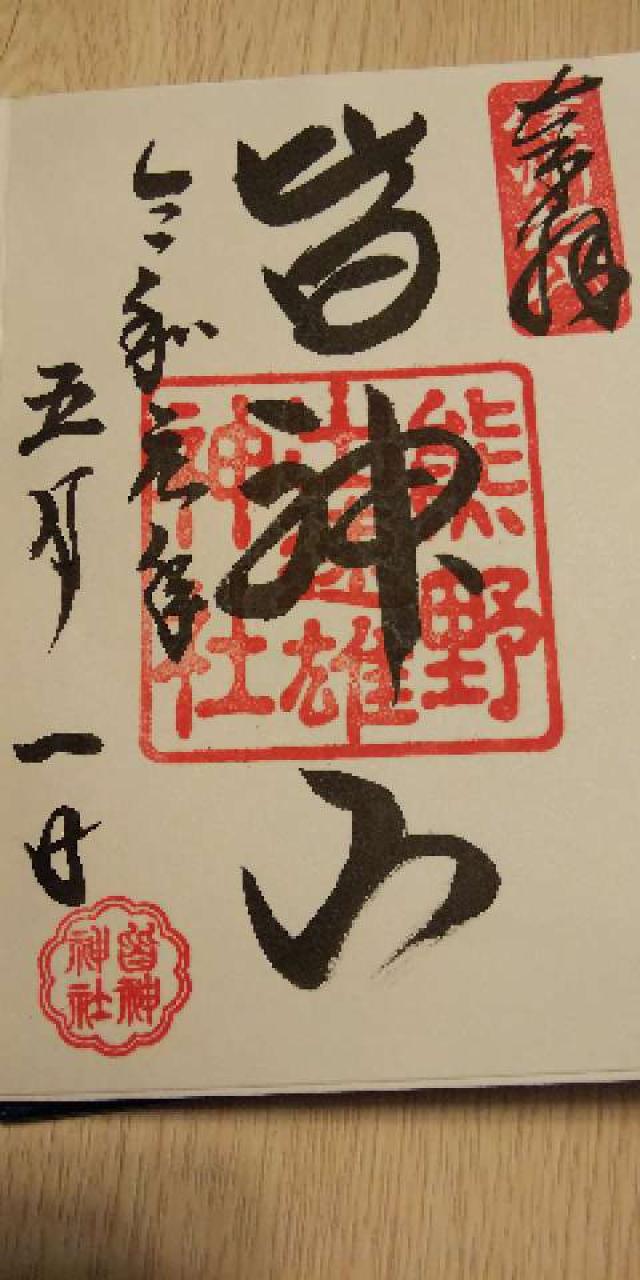 奉拝
皆神山
熊野
出速雄
神社
令和元年
五月一日
皆神
神社